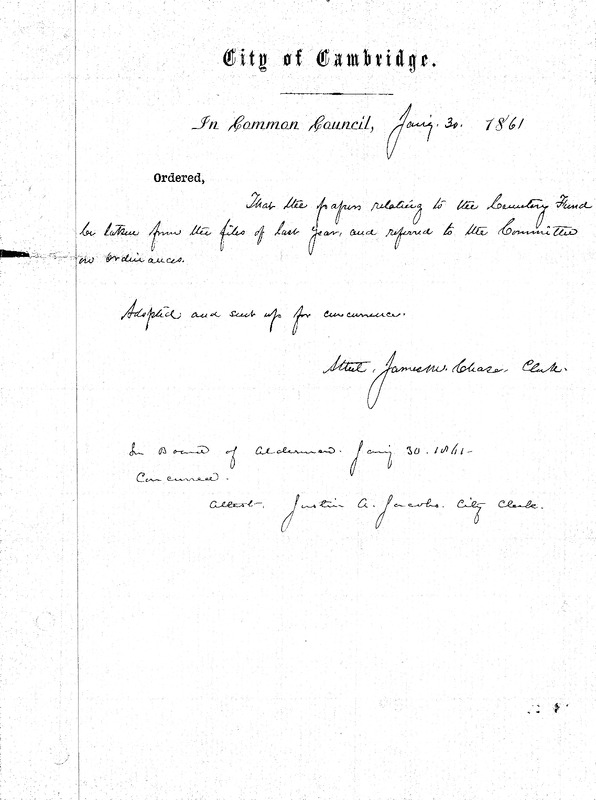 City of Cambridge.
In Common Council, Jany. 30. 1861
Ordered,
That the papers relating to the Cemetery Fund
be taken from the files of last year, and referred to the Committee
on Ordinances.
Adopted and sent up for concurrence.
Attest, James M. Chase. Clerk.
In Board of Aldermen. Jany 30. 1861-
Concurred.
Attest. Justin A. Jacobs. City Clerk.